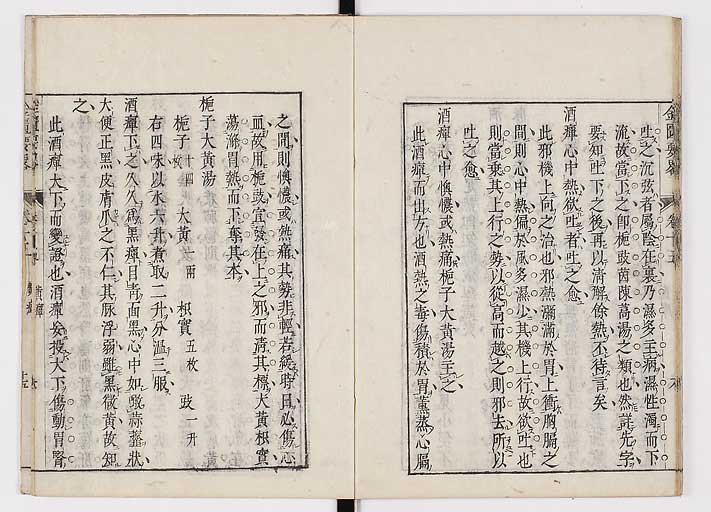 吐之沉弦者屬陰在裏乃濕多主病濕性濁而下
流故當下之卽梔豉茵陳蒿湯之類也然詳先字
要知吐下之後再以清解餘熱不待言矣
酒癉心中熱欲吐者吐之愈
此邪機上向之治也邪熱滿滿於胃上衝胸膈之
間則心中熱偏於風多濕少其機上行故欲吐也
則當乘其上行之勢以從高而越之則邪去所以
吐之愈
酒癉心中懊憹或熱痛梔子大黃湯主之
此酒癉而出方也酒熱之毒傷積於胃薰蒸心膈
之間則懊憹或熱痛其勢非輕若緩時日必傷心
血故用梔豉宜發在上之邪而清其標大黃枳實
蕩滌胃熱而下奪其本
梔子大黃湯
梔子十四枚 大黃一兩 枳實五枚 豉一升
右四味以水六升煮取二升分溫三服
酒癉下之久久爲黑癉目青面黑心中如噉蒜虀狀
大便正黑皮膚爪之不仁其脉浮弱雖黑微黃故知
之
此酒癉大下而變證也酒癉妄投大下傷動胃腎